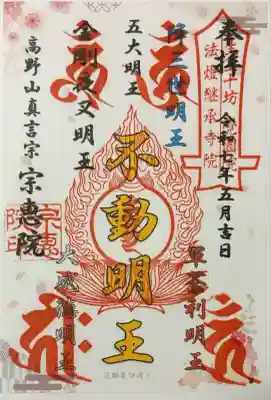 奉拝
令和七年五月吉日
法燈継承寺院
降三世明王
軍荼利明王
不動明王
五大明王
金剛夜叉明王
大威徳明王
高野山真言宗
宗惠院